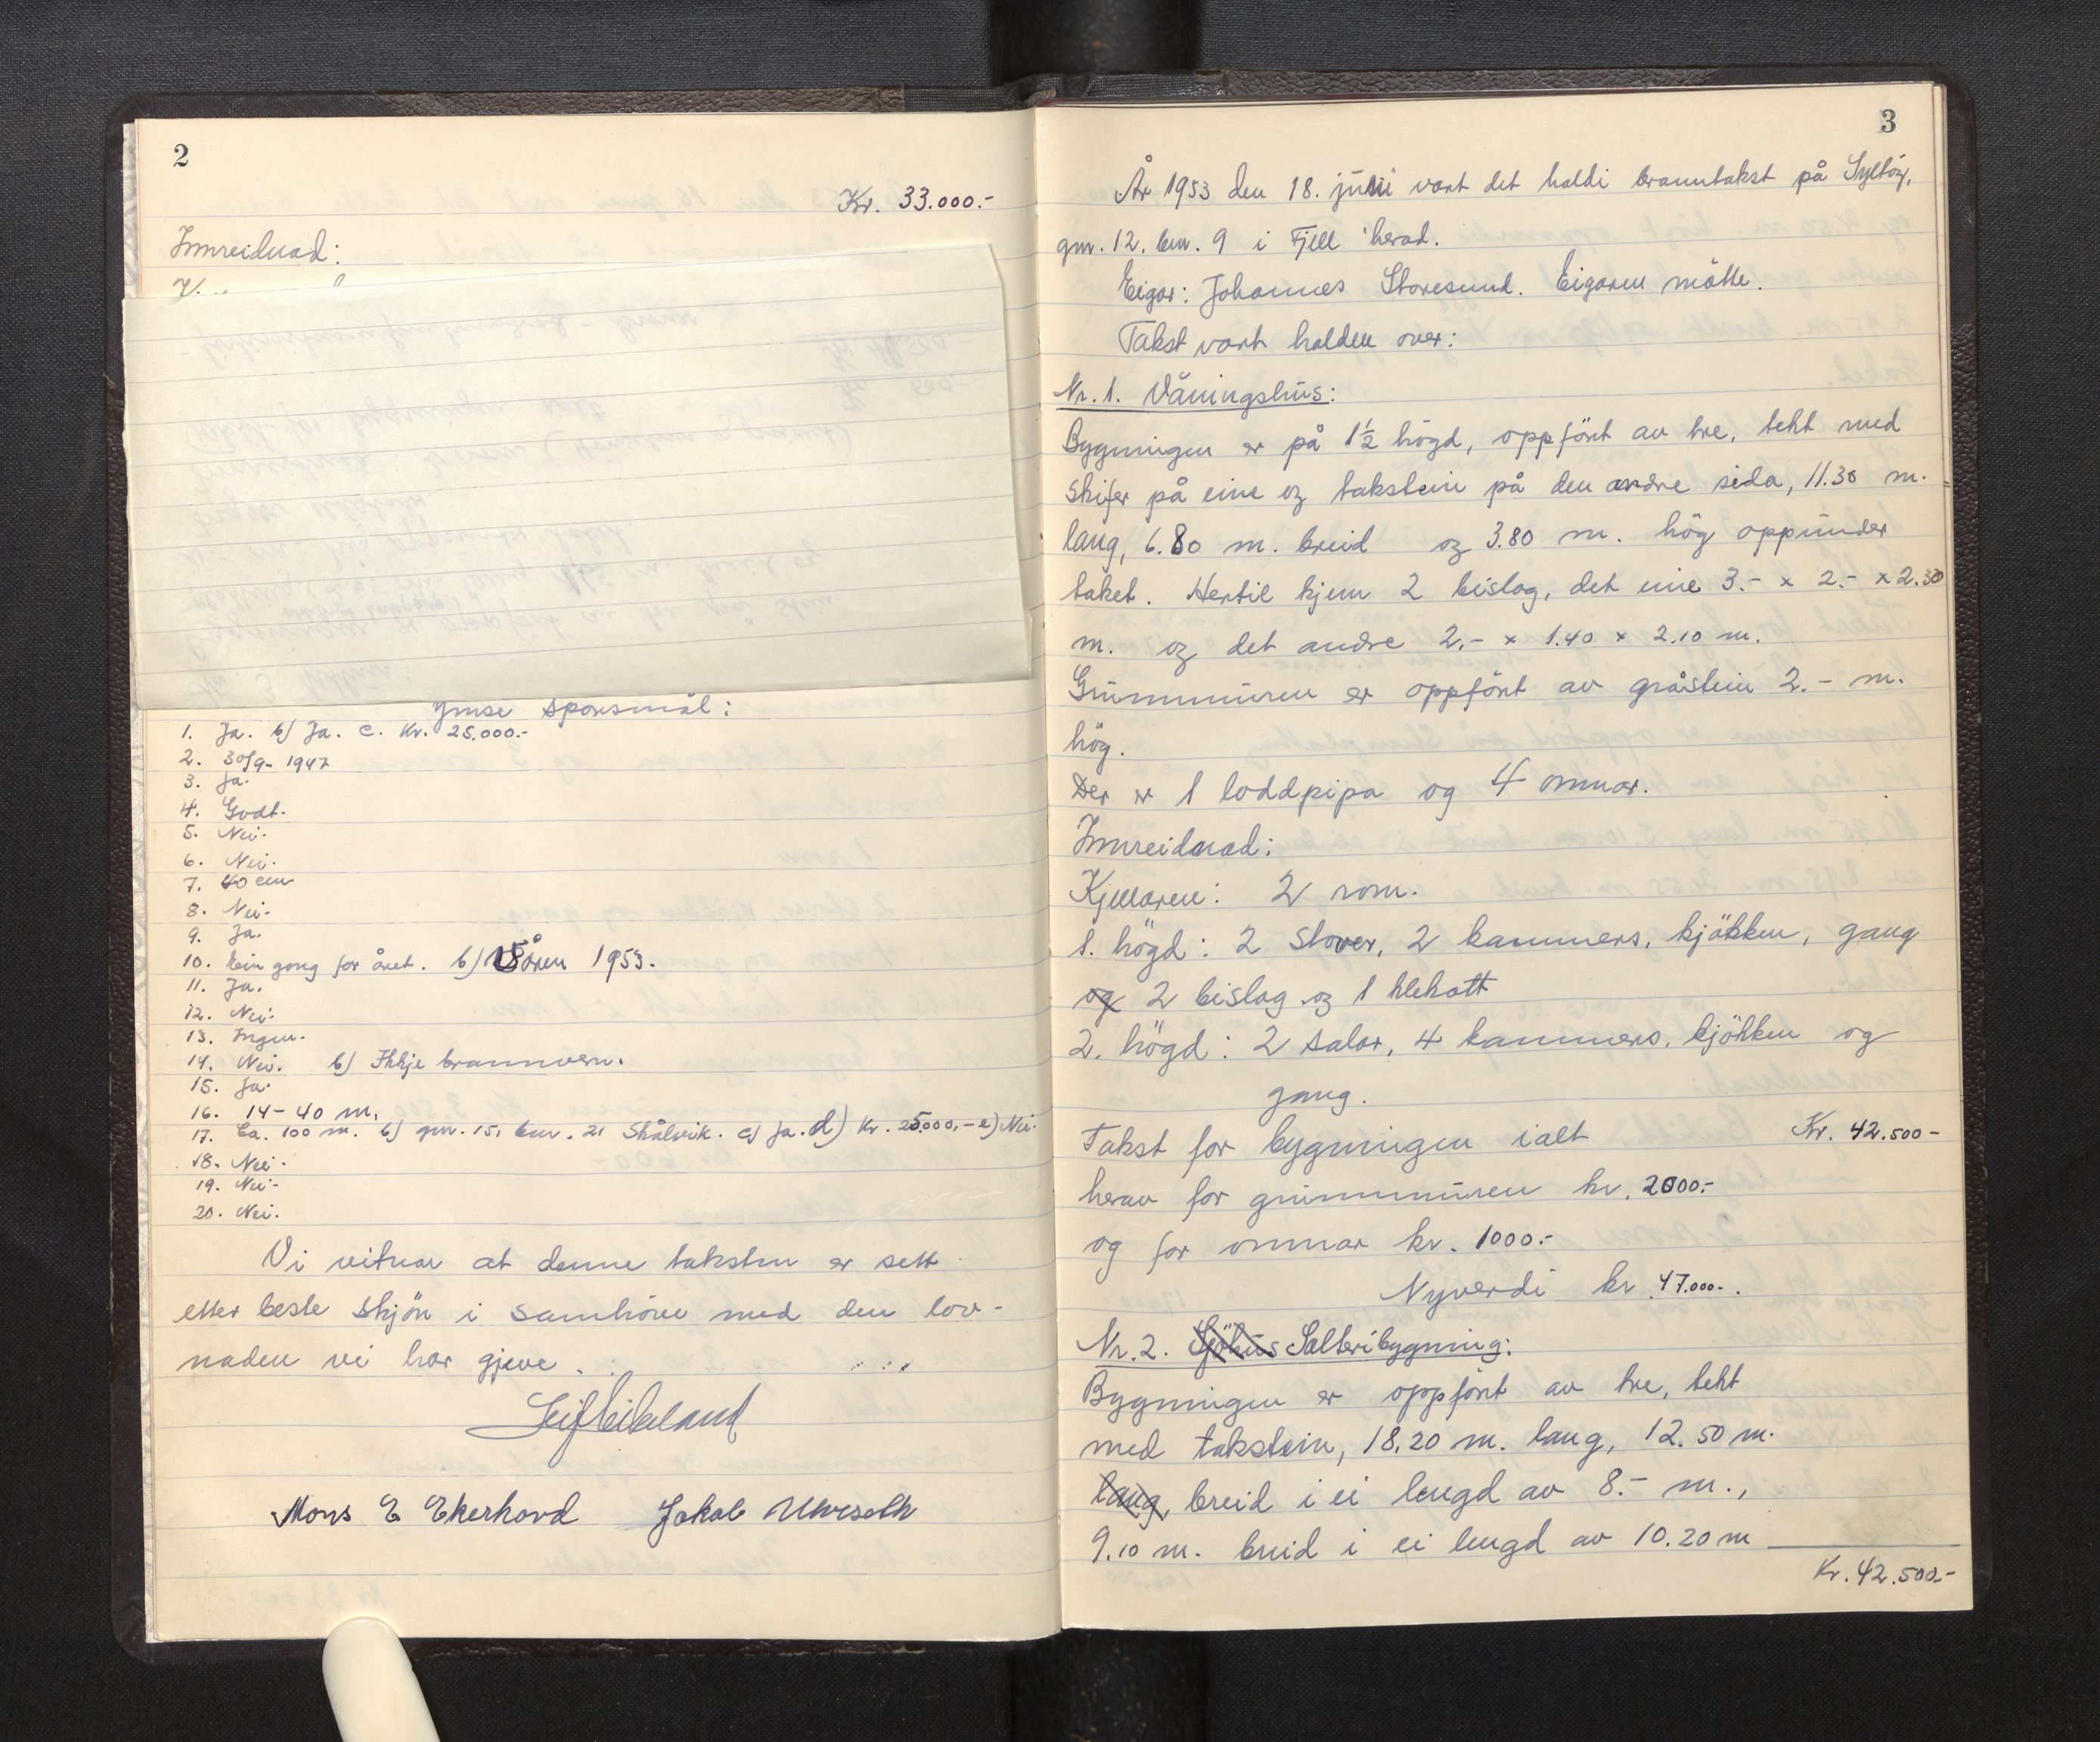 2
Kr. 33.000.-
Innreidnad:
Ymse spörsmål:
1. Ja. b) Ja. c. Kr. 25.000.-
2. 30/9- 1947
3. Ja.
4. Godt.
5. Nei.
6. Nei.
7. 40 cm
8. Nei.
9. Ja.
10. Ein gong for året. b) Våren 1953.
11. Ja.
12. Nei.
13. Ingen.
14. Nei. b) Ikkje brannvern.
15. Ja.
16. 14-40 m.
17. Ca. 100 m. b) gnr. 15, bnr. 21 Skålvik. c) Ja. d) Kr. 25.000.- e) Nei.
18. Nei.
19. Nei.
20. Nei.
Vi vitnar at denne taksten er sett
etter beste skjön i samhöve med den lov-
naden vi har gjeve.
Mons E Ekerhovd Jakob Ulveseth
3
År 1953 den 18. juni vart det haldi branntakst på Syltöy,
gnr. 12, bnr. 9 i Fjell herad.
Eigar: Johannes Storesund. Eigaren mötte.
Takst vart halden over:
Nr. 1. Våningshus:
Bygningen er på 1½ högd, oppfört av tre, tekt med
skifer på eine og takstein på den andre sida, 11.30 m.
lang, 6.80 m. breid og 3.80 m. hög oppunder
taket. Hertil kjem 2 bislag, det eine 3.- x 2.- x 2.30
m. og det andre 2.- x 1.40 x 2.10 m.
Grunnmuren er oppfört av gråstein 2.- m.
hög.
Der er 1 loddpipa og 4 omnar.
Innreidnad:
Kjellaren: 2 rom.
1. högd: 2 stover, 2 kammers, kjökken, gang
og 2 bislag og 1 klekott
2. högd: 2 salar, 4 kammers, kjökken og
gang.
Takst for bygningen ialt Kr. 42.500-
herav for grunnmuren kr. 2000.-
og for omnar kr. 1000.-
Nyverdi kr. 47.000.-.
Nr. 2. Sjöhus Salteribygning:
Bygningen er oppfört av tre, tekt
med takstein, 18.20 m. lang, 12.50 m.
lang, breid i ei lengd av 8.- m.,
9.10 m. breid i ei lengd av 10.20 m
Kr. 42.500.-